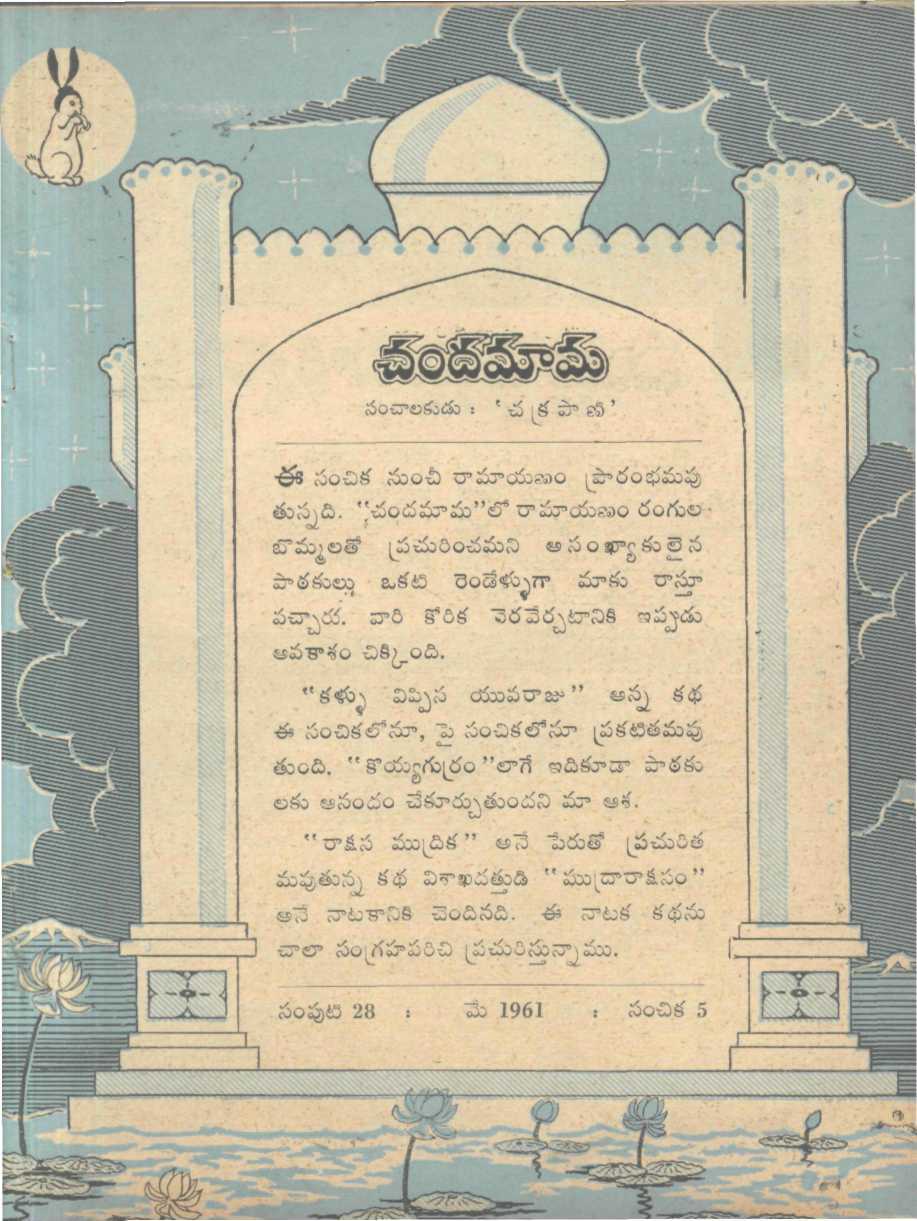 చందమామ
సంచాలకుడు : ‘చక్రపాణి’
ఈ సంచిక నుంచీ రామాయణం ప్రారంభమవు
తున్నది. “చందమామ”లో రామాయణం రంగుల
బొమ్మలతో ప్రచురించమని అసంఖ్యాకులైన
పాఠకులు ఒకటి రెండేళ్ళుగా మాకు రాస్తూ
వచ్చారు. వారి కోరిక నెరవేర్చటానికి ఇప్పుడు
అవకాశం చిక్కింది.
“కళ్ళు విప్పిన యువరాజు” అన్న కథ
ఈ సంచికలోనూ, పై సంచికలోనూ ప్రకటితమవు
తుంది. “కొయ్యగుర్రం”లాగే ఇదికూడా పాఠకు
లకు ఆనందం చేకూర్చుతుందని మా ఆశ.
“రాక్షస ముద్రిక” అనే పేరుతో ప్రచురిత
మవుతున్న కథ విశాఖదత్తుడి “ముద్రారాక్షసం”
అనే నాటకానికి చెందినది. ఈ నాటక కథను
చాలా సంగ్రహపరిచి ప్రచురిస్తున్నాము.
సంపుటి 28 : మే 1961 : సంచిక 5